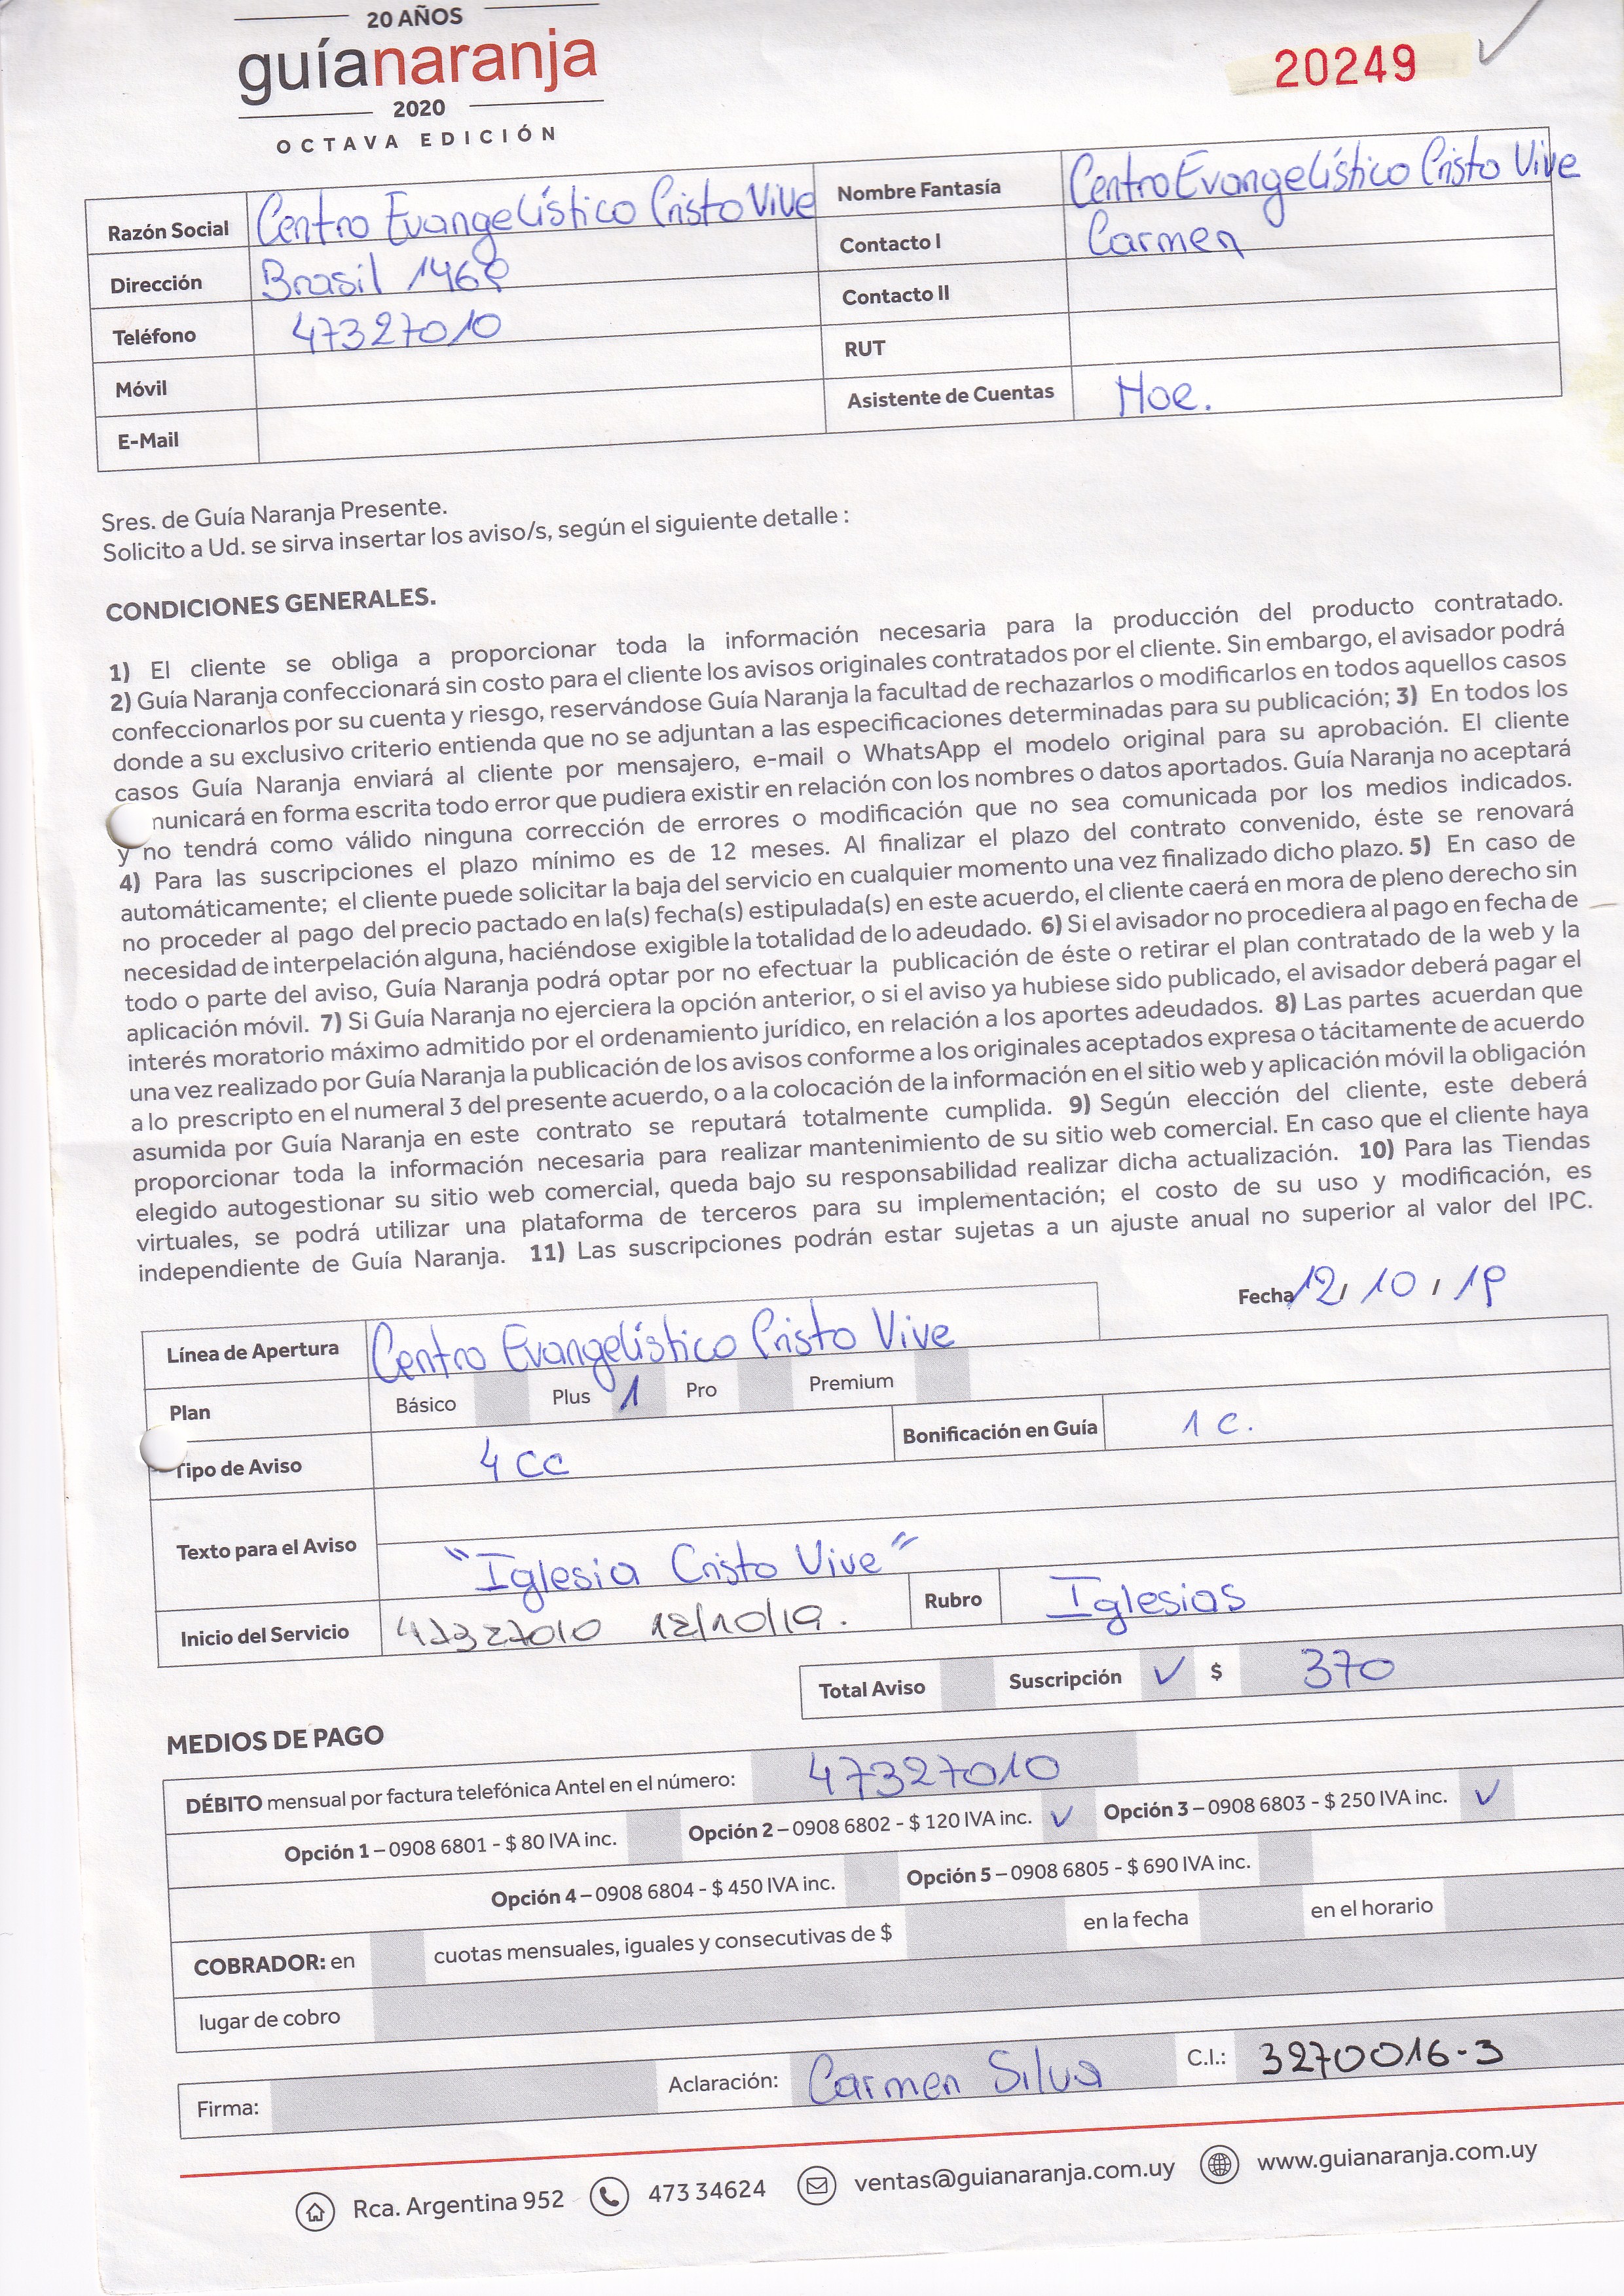 20 AÑOS
guíanaranja
2020
OCTAVA EDICIÓN
20249
Razón Social Centro Evangelístico Cristo Vive Nombre Fantasía Centro Evangelístico Cristo Vive
Dirección Brasil 1468 Contacto I Carmen
Teléfono 47327010 Contacto II
Móvil RUT
E-Mail Asistente de Cuentas Noe.
Sres. de Guía Naranja Presente.
Solicito a Ud. se sirva insertar los aviso/s, según el siguiente detalle :
CONDICIONES GENERALES.
1) El cliente se obliga a proporcionar toda la información necesaria para la producción del producto contratado.
2) Guía Naranja confeccionará sin costo para el cliente los avisos originales contratados por el cliente. Sin embargo, el avisador podrá
confeccionarlos por su cuenta y riesgo, reservándose Guía Naranja la facultad de rechazarlos o modificarlos en todos aquellos casos
donde a su exclusivo criterio entienda que no se adjuntan a las especificaciones determinadas para su publicación; 3) En todos los
casos Guía Naranja enviará al cliente por mensajero, e-mail o WhatsApp el modelo original para su aprobación. El cliente
municará en forma escrita todo error que pudiera existir en relación con los nombres o datos aportados. Guía Naranja no aceptará
y no tendrá como válido ninguna corrección de errores o modificación que no sea comunicada por los medios indicados.
4) Para las suscripciones el plazo mínimo es de 12 meses. Al finalizar el plazo del contrato convenido, éste se renovará
automáticamente; el cliente puede solicitar la baja del servicio en cualquier momento una vez finalizado dicho plazo. 5) En caso de
no proceder al pago del precio pactado en la(s) fecha(s) estipulada(s) en este acuerdo, el cliente caerá en mora de pleno derecho sin
necesidad de interpelación alguna, haciéndose exigible la totalidad de lo adeudado. 6) Si el avisador no procediera al pago en fecha de
todo o parte del aviso, Guía Naranja podrá optar por no efectuar la publicación de éste o retirar el plan contratado de la web y la
aplicación móvil. 7) Si Guía Naranja no ejerciera la opción anterior, o si el aviso ya hubiese sido publicado, el avisador deberá pagar el
interés moratorio máximo admitido por el ordenamiento jurídico, en relación a los aportes adeudados. 8) Las partes acuerdan que
una vez realizado por Guía Naranja la publicación de los avisos conforme a los originales aceptados expresa o tácitamente de acuerdo
a lo prescripto en el numeral 3 del presente acuerdo, o a la colocación de la información en el sitio web y aplicación móvil la obligación
asumida por Guía Naranja en este contrato se reputará totalmente cumplida. 9) Según elección del cliente, este deberá
proporcionar toda la información necesaria para realizar mantenimiento de su sitio web comercial. En caso que el cliente haya
elegido autogestionar su sitio web comercial, queda bajo su responsabilidad realizar dicha actualización. 10) Para las Tiendas
virtuales, se podrá utilizar una plataforma de terceros para su implementación; el costo de su uso y modificación, es
independiente de Guía Naranja. 11) Las suscripciones podrán estar sujetas a un ajuste anual no superior al valor del IPC.
Fecha 12 / 10 / 19
Línea de Apertura Centro Evangelístico Cristo Vive
Plan Básico Plus 1 Pro Premium
Tipo de Aviso 4 CC Bonificación en Guía 1 C.
Texto para el Aviso "Iglesia Cristo Vive"
Inicio del Servicio 47327010 12/10/19. Rubro Iglesias
Total Aviso Suscripción ✓ $ 370
MEDIOS DE PAGO
DÉBITO mensual por factura telefónica Antel en el número: 47327010
Opción 1 – 0908 6801 - $ 80 IVA inc. Opción 2 – 0908 6802 - $ 120 IVA inc. ✓ Opción 3 – 0908 6803 - $ 250 IVA inc. ✓
Opción 4 – 0908 6804 - $ 450 IVA inc. Opción 5 – 0908 6805 - $ 690 IVA inc.
COBRADOR: en cuotas mensuales, iguales y consecutivas de $ en la fecha en el horario
lugar de cobro
Firma: Aclaración: Carmen Silva C.I.: 3270016-3
Rca. Argentina 952 473 34624 ventas@guianaranja.com.uy www.guianaranja.com.uy